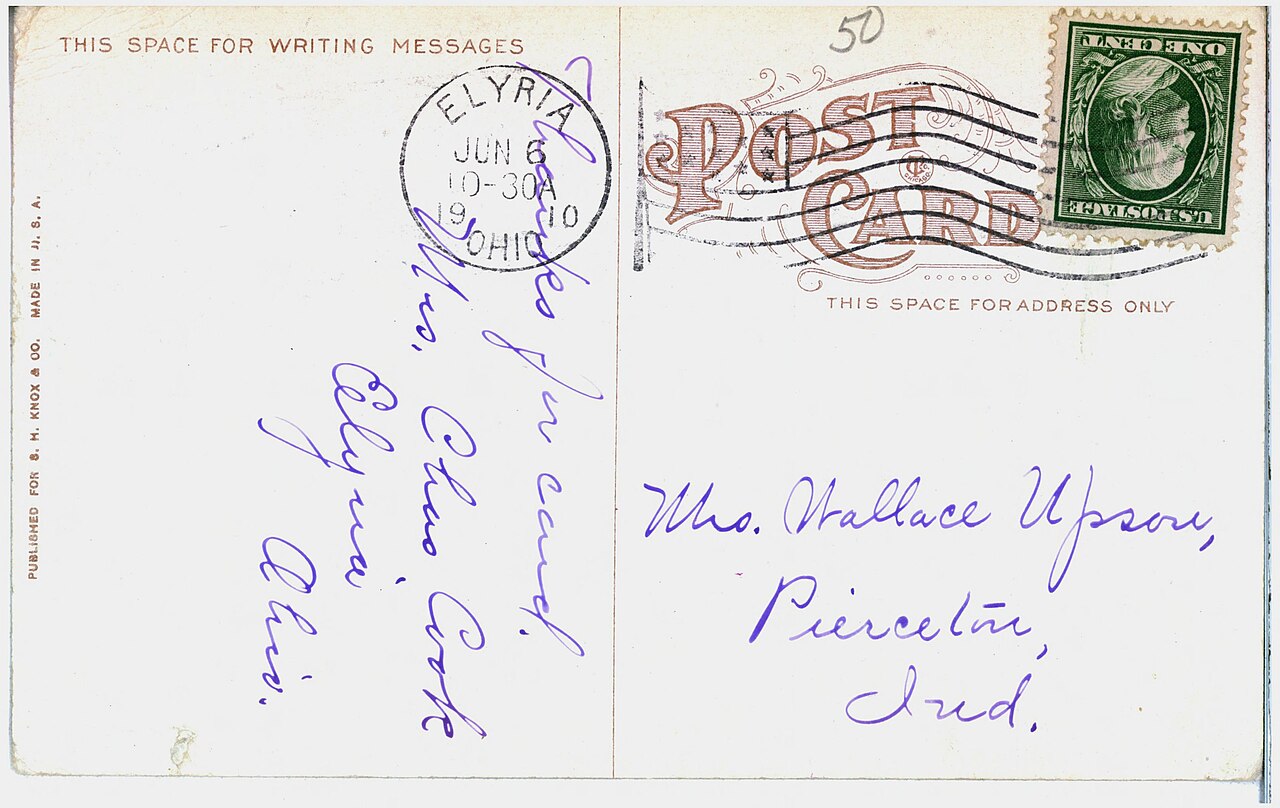 THIS SPACE FOR WRITING MESSAGES
PUBLISHED FOR S. H. KNOX & CO. MADE IN U. S. A.
ELYRIA
JUN 6
10-30A
1910
OHIO
Thanks for card.
Mrs. Chas Cook
Elyria
Ohio.
50
POST
CARD
CHICAGO
THIS SPACE FOR ADDRESS ONLY
U.S. POSTAGE
ONE CENT
Mrs. Wallace Upson,
Pierceton,
Ind.